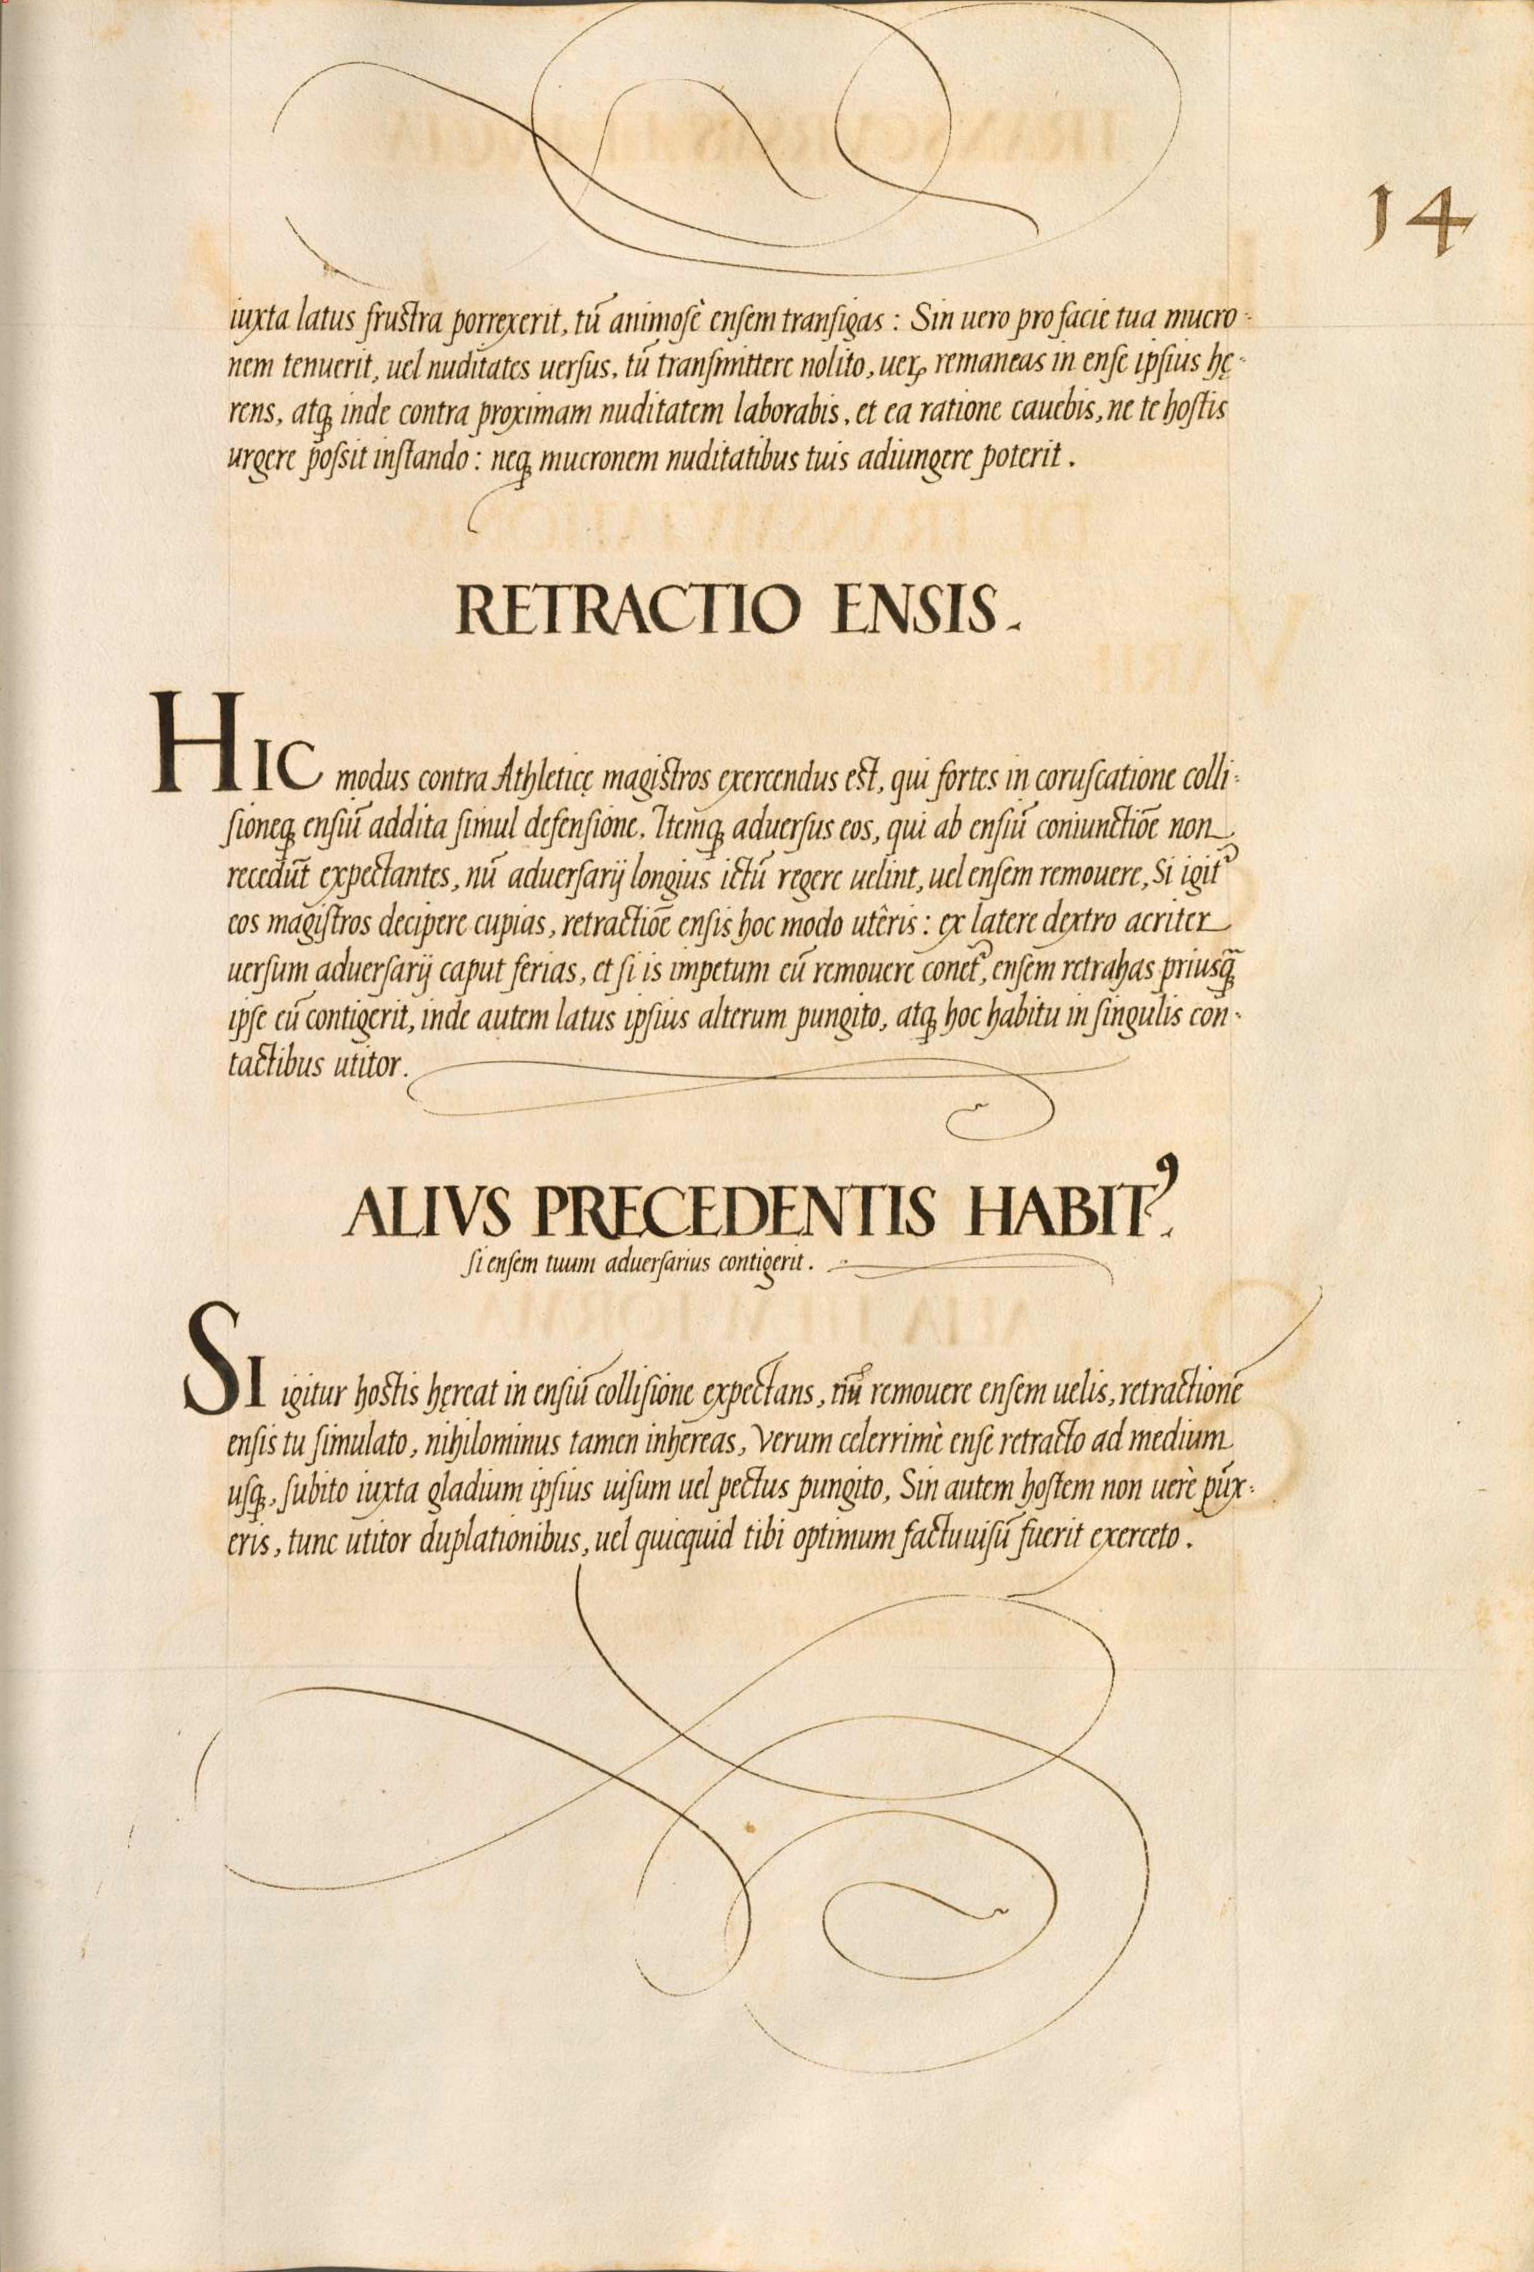 14
iuxta latus frustra porrexerit, tū animosè ensem transigas : Sin uero pro facie tua mucro-
nem tenuerit, uel nuditates uersus, tū transmittere nolito, ueꝝ remaneas in ense ipsius hę-
rens, atq; inde contra proximam nuditatem laborabis, et ea ratione cauebis, ne te hostis
urgere possit instando : neq; mucronem nuditatibus tuis adiungere poterit .
RETRACTIO ENSIS.
HIC modus contra Athleticę magistros exercendus est, qui fortes in coruscatione colli-
sioneq; ensiū addita simul defensione. Itemq; aduersus eos, qui ab ensiū coniunctiōe non
recedūt expectantes, nū aduersarij longius ictū regere uelint, uel ensem remouere, Si igit᷒
eos magistros decipere cupias, retractiōe ensis hoc modo utêris : ex latere dextro acriter
uersum aduersarij caput ferias, et si is impetum eū remouere conet᷒, ensem retrahas priusq̄;
ipse eū contigerit, inde autem latus ipsius alterum pungito, atq; hoc habitu in singulis con-
tactibus utitor.
ALIVS PRECEDENTIS HABIT᷒.
Si ensem tuum aduersarius contigerit.
SI igitur hostis hęreat in ensiū collisione expectans, nū remouere ensem uelis, retractione
ensis tu simulato, nihilominus tamen inhereas, Verum celerrimè ense retracto ad medium
usq;, subito iuxta gladium ipsius uisum uel pectus pungito, Sin autem hostem non uerè pūx-
eris, tunc utitor duplationibus, uel quicquid tibi optimum factu uisū fuerit exerceto .